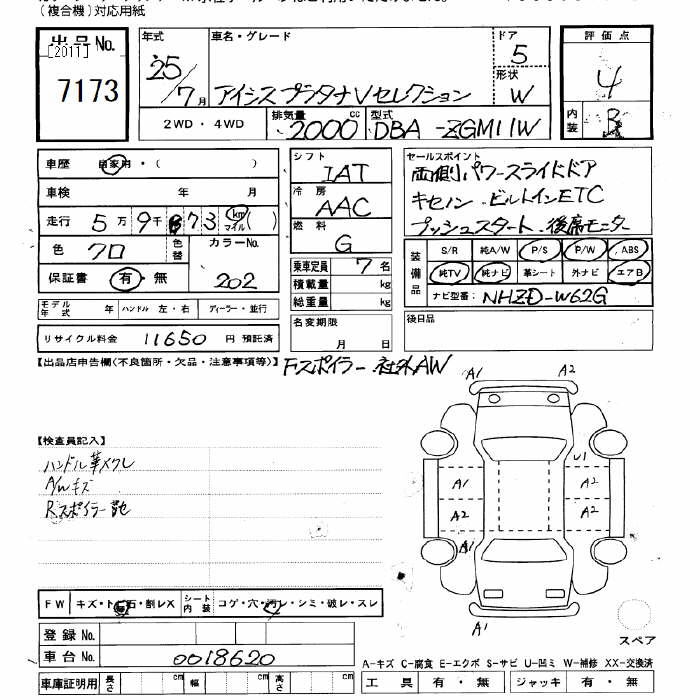 (複合機)対応用紙
出品No. 年式 車名・グレード ドア 評価点
[2011] 25/7月 アイシスプラタナVセレクション 5 4
7173 形状 W
2WD・4WD 排気量 2000cc 型式 DBA-ZGM11W 内装 B
車歴 自家用・( ) シフト IAT セールスポイント
両側パワースライドドア
車検 年 月 冷房 AAC キセノン.ビルトインETC
走行 5万9千 73 km マイル( ) 燃料 G プッシュスタート.後席モニター
色 クロ 色替 カラーNo. 202 乗車定員 7名 装備品 S/R 純A/W P/S P/W ABS
保証書 有・無 積載量 kg 純TV 純ナビ 革シート 外ナビ エアB
総重量 kg ナビ型番: NHZD-W62G
モデル年式 年 ハンドル 左・右 ディーラー・並行 名変期限 月 日 後日品
リサイクル料金 11650 円 預託済
【出品店申告欄(不良箇所・欠品・注意事項等)】 Fスポイラー.社外AW
A1 A2
【検査員記入】
ハンドル革メクレ U1
A/Wキズ A1 A2
Rスポイラー A2 A2
A1
FW キズ・ト 石・割レX シート内装 コゲ・穴・汚レ・シミ・破レ・スレ
登録No. A1 スペア
車台No. 0018620 A-キズ C-腐食 E-エクボ S-サビ U-凹ミ W-補修 XX-交換済
車庫証明用 長さ cm 幅 cm 高さ cm 工具 有・無 ジャッキ 有・無